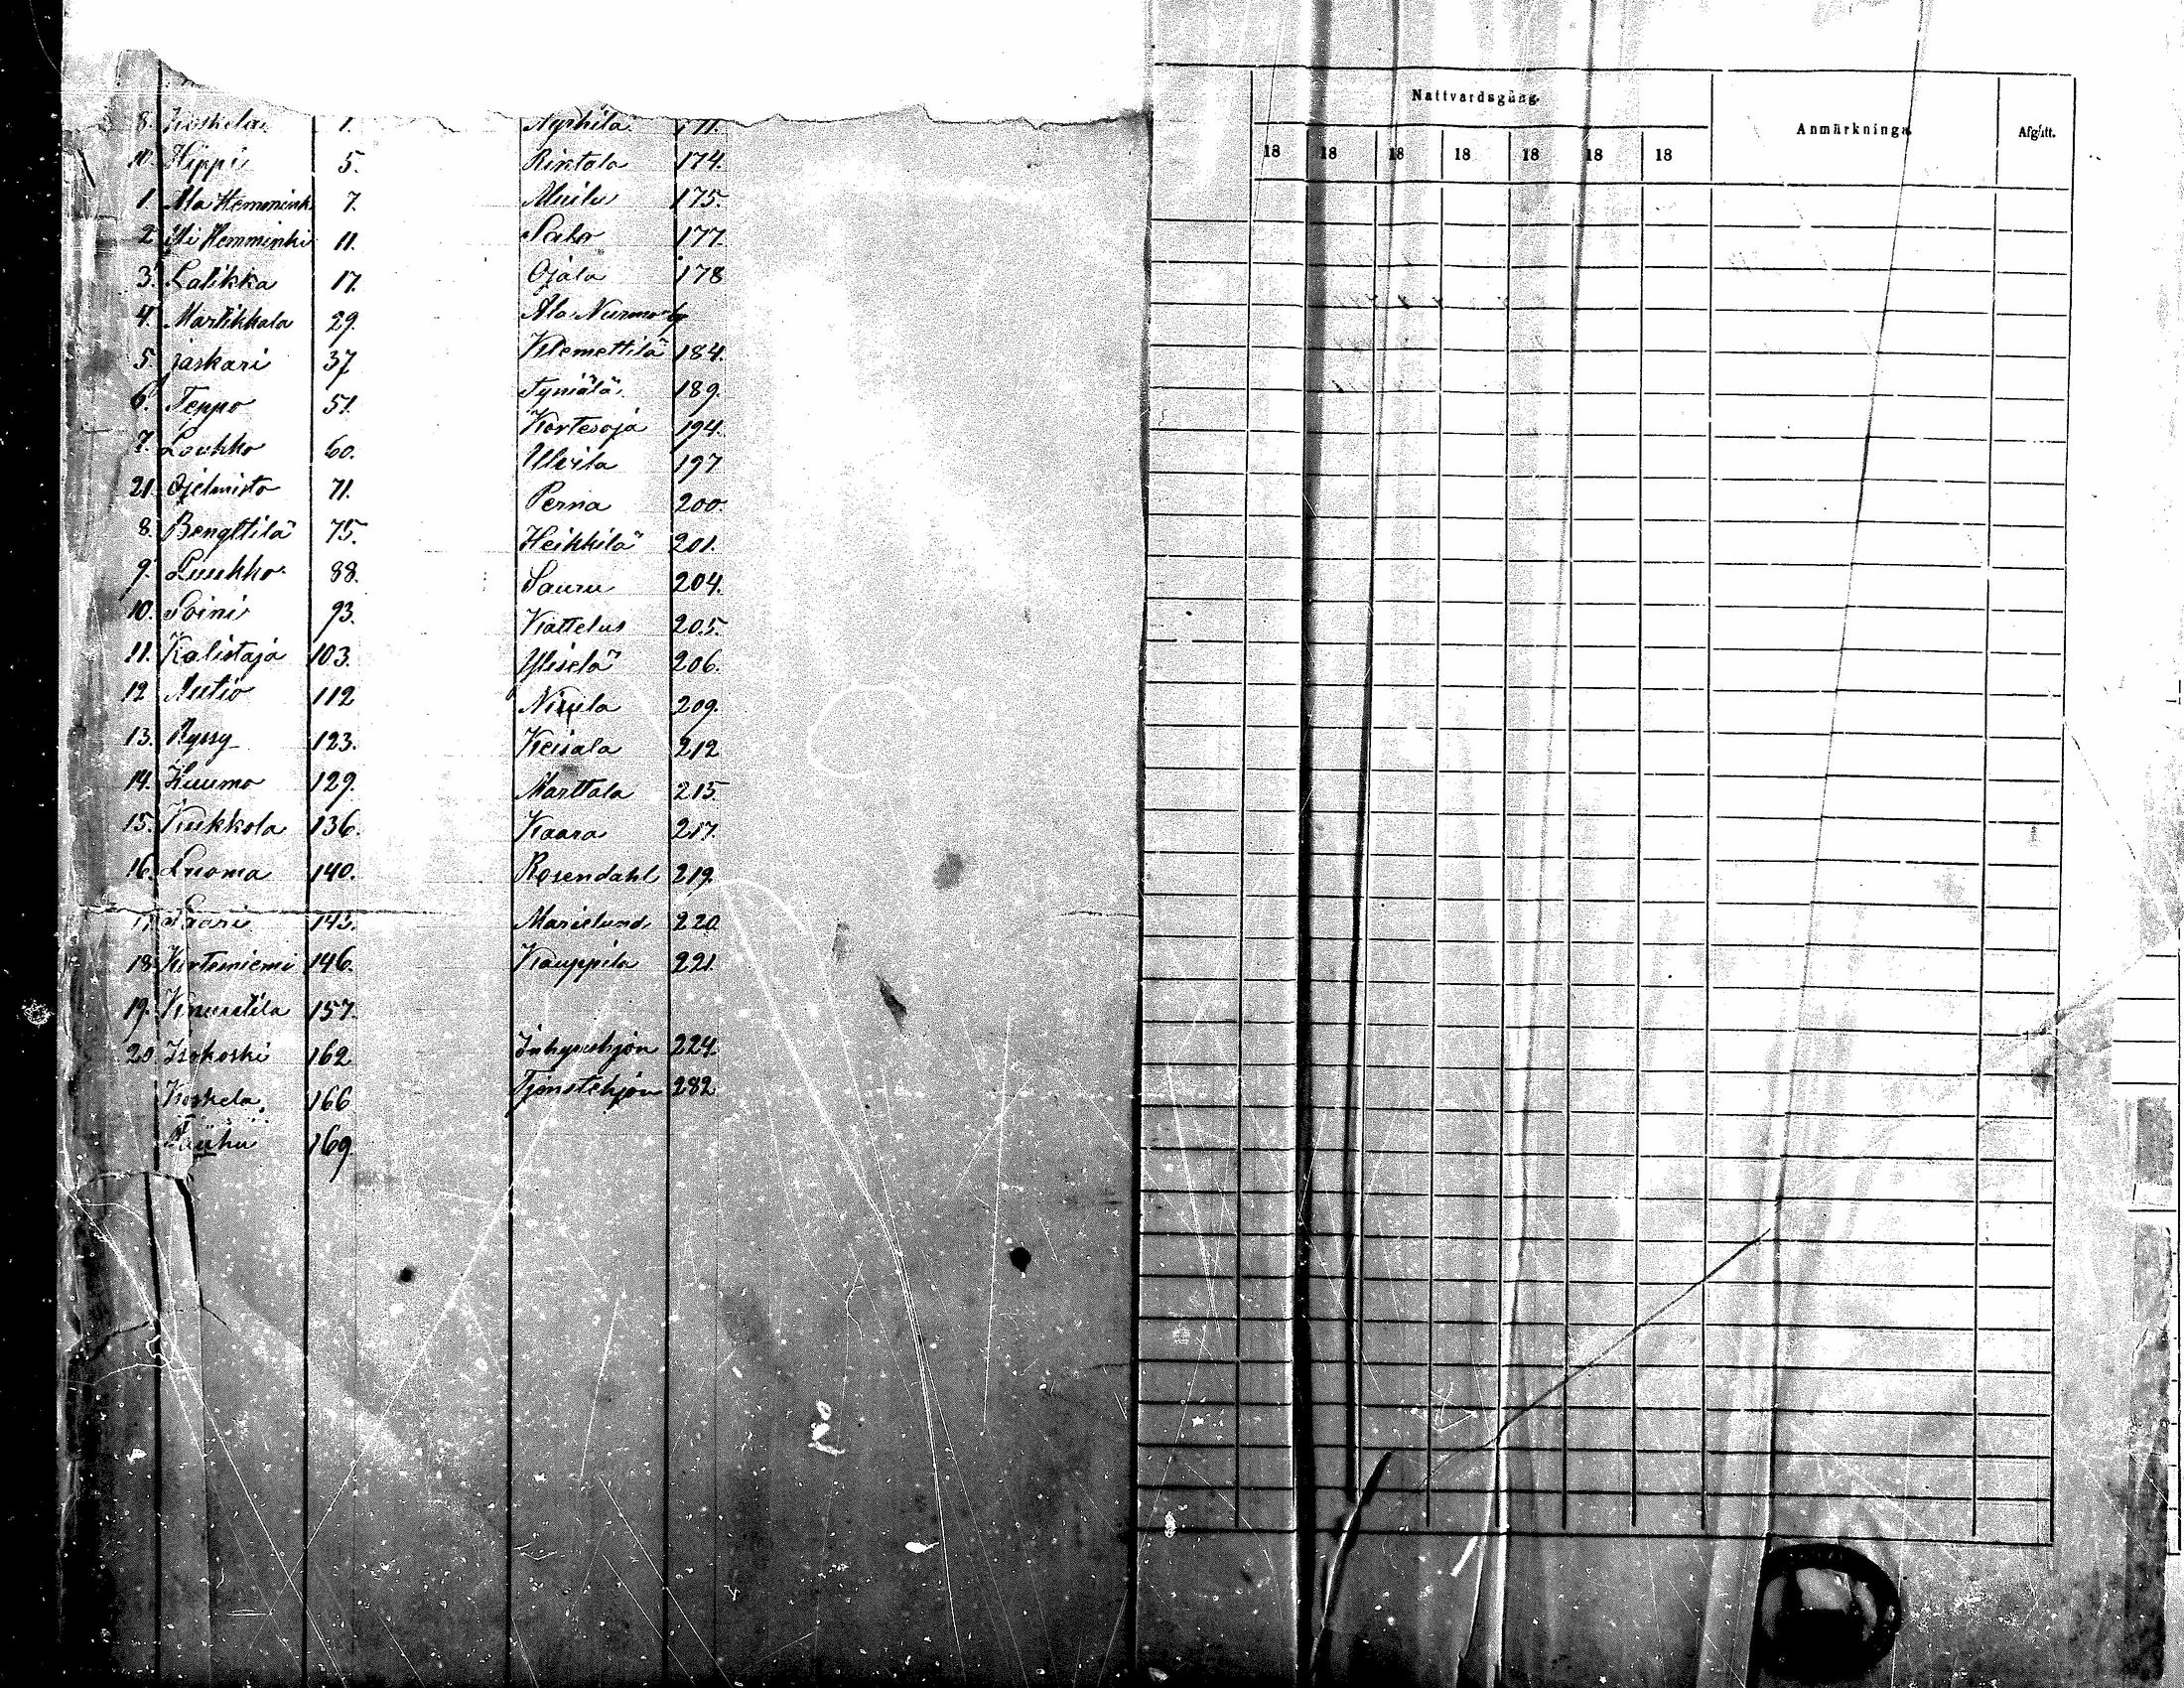 8. Koskela 1.
10. Hippi 5.
1. Ala Hemmink 7.
2 Yli Hemminki 11.
3. Latikka 17.
4. Martikkala 29.
5. Jaskari 37
6. Teppo 51.
7. Loukko 60.
21. Ojelmisto 71.
8. Bengttilä 75.
9. Luukko 88.
10. Soini 93.
11. Kalistaja 103.
12 Autio 112
13. Ryssy 123.
14. Kuumo 129.
15. Kukkola 136.
16. Luoma 140.
Saari 143.
18. Kortemiemi 146.
19. Knuutila 157.
20. Isokoski 162
Koskela 166
169.
Nyrhilä 171.
Rintala 174.
Muilu 175.
Salo 177.
Ojala 178
Ala Nurmo by
Klemettilä 184.
Tyniälä 189.
Kortesoja 194.
Ulvila 197
Perna 200.
Heikkilä 201.
Sauru 204.
Kattelus 205.
Yliselä 206.
Nirula 209.
Keisala 212
Marttala 215.
Kaara 217.
Rosendahl 219.
Marielund 220
Kauppila 221.
Inhyseshjon 224.
Tjenstehjon 282
Nattvardsgång.
Anmärkninga
Afgått.
18 18 18 18 18 18 18